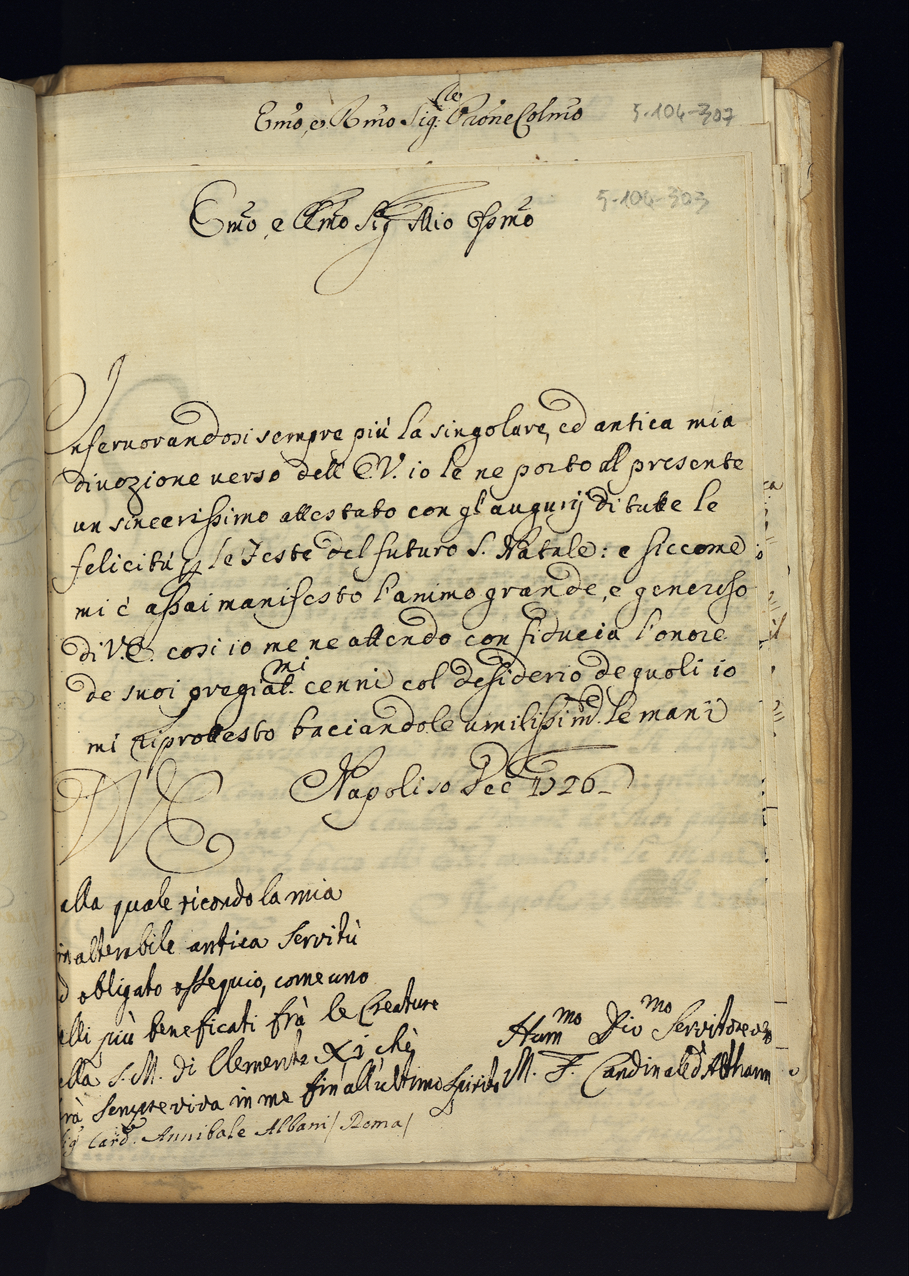 Emo, e Rmo Sig: Prone Colmo
5-104-307
5-104-303
Emo, e Rmo Sig Mio Ossmo
Inferuorandosi sempre più la singolare, ed antica mia
diuozione uerso dell' E.V. io le ne porto al presente
un sincerissimo attestato con gl'augurij di tutte le
felicitú p le Feste del futuro S. Natale: e siccome
mi è assai manifesto l'animo grande, e generoso
di V.E. cosi io me ne attendo con fiducia l'onore
de suoi pregiatmi. cenni col desiderio de quali io
mi riprottesto baciandole umilissimte. le mani
Napoli 10 Dec 1726
alla quale ricordo la mia
inalterabile antica servitù
ed obligato ossequio, come uno
elli più beneficati frà le Creature
ella S.M. di Clemente XI chè
rà sempre viva in me fin all'ultimo spirito
Hummo Divmo Servitore vo
M. F. Cardinale d'Althann
Sig Card. Annibale Albani / Roma /